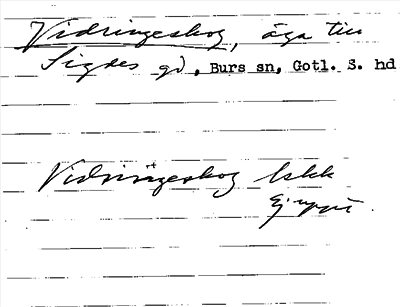 Vidringeskog, äga till
Sigdes gd, Burs sn, Gotl. S. hd
Vidringeskog
Ej uppt.